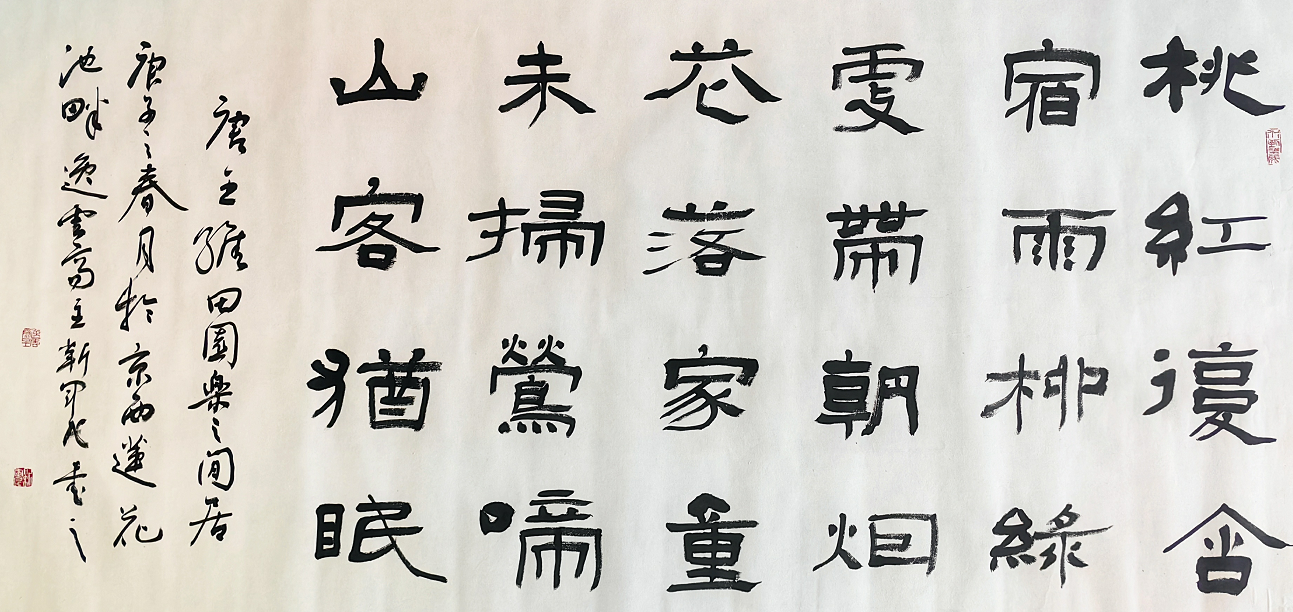 桃紅復含
宿雨柳綠
更帶朝烟
花落家童
未掃鶯啼
山客猶眠
唐王維田園樂之閒居
庚子之春月於京西蓮花
池畔逸雲主靳書之